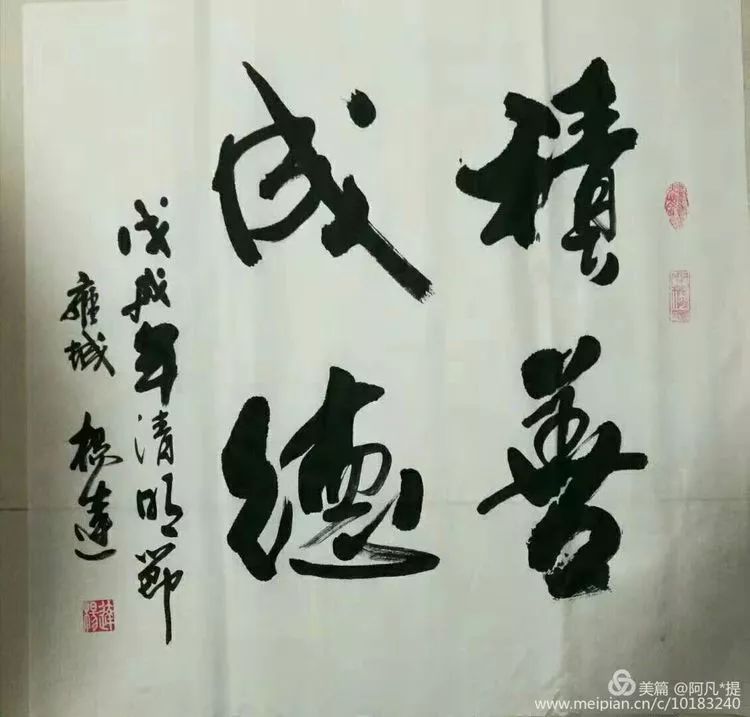 積善
成德
戊戌年清明節
雍城 楊達
美篇 @阿凡*提
www.meipian.cn/c/10183240